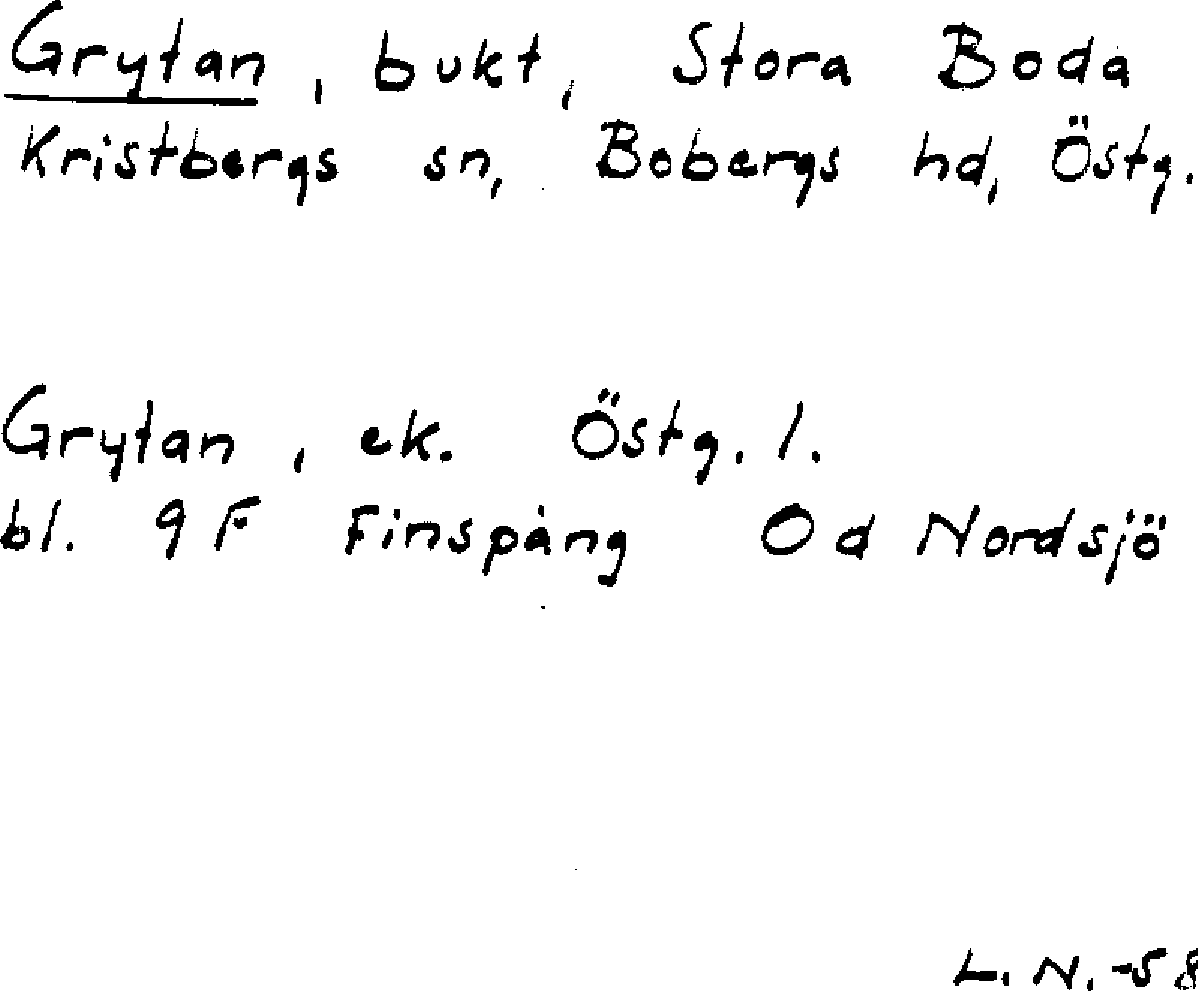 Grytan, bukt, Stora Boda
Kristbergs sn, Bobergs hd, Östg.
Grytan, ek. Östg. l.
bl. 9F Finspång 0d Nordsjö
L. N. -58